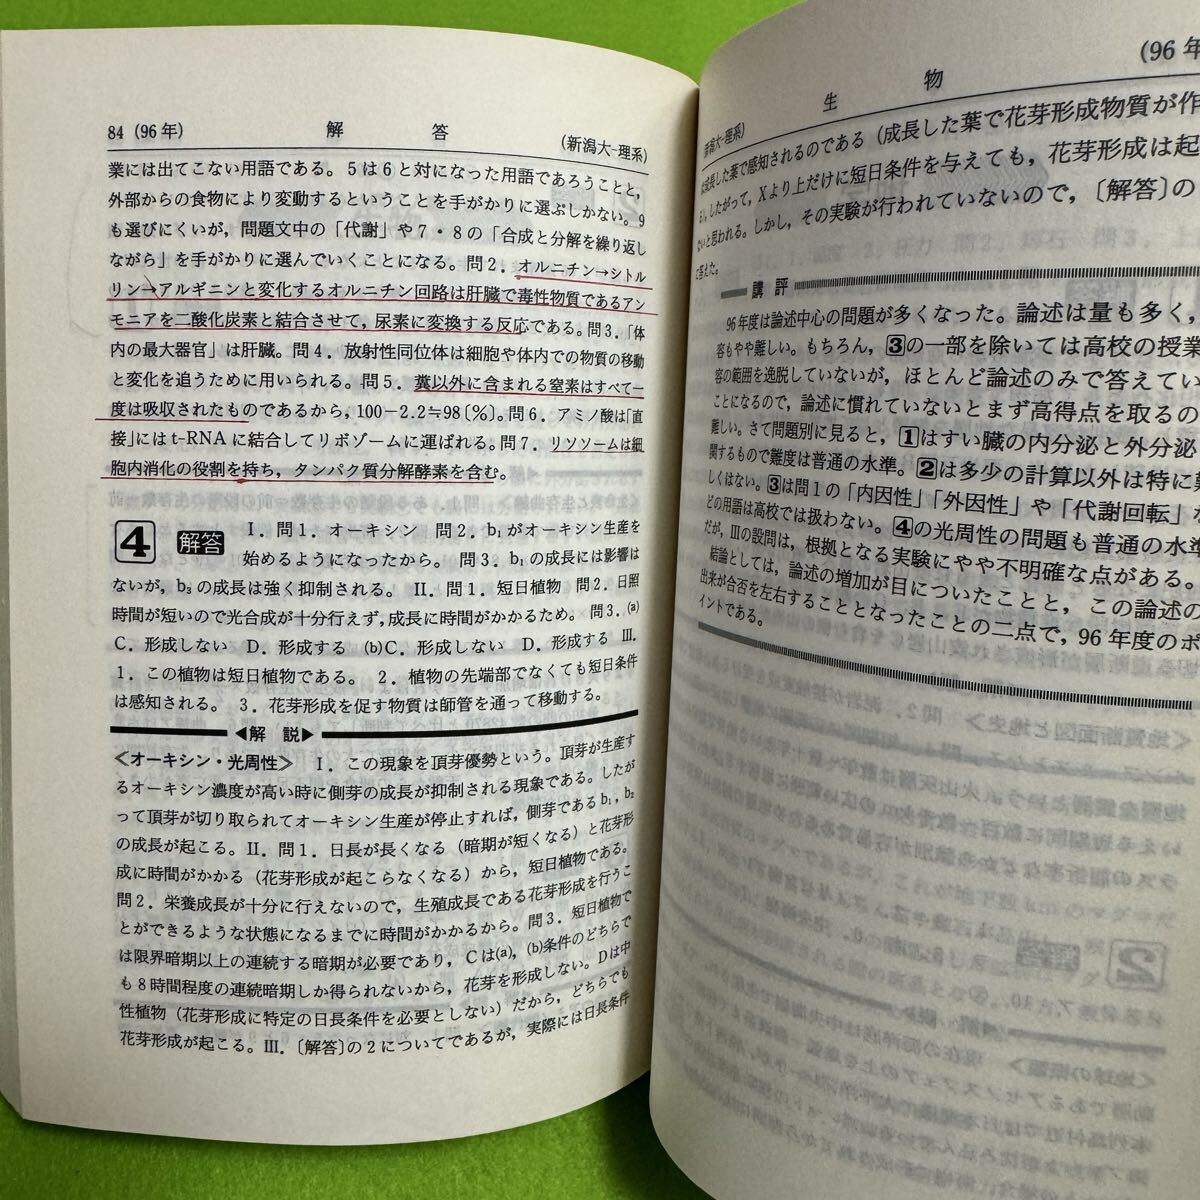 84 (96年) 解答 (新潟大-理系)
業には出てこない用語である。5は6と対になった用語であろうことと,
外部からの食物により変動するということを手がかりに選ぶしかない。9
も選びにくいが, 問題文中の「代謝」や7・8の「合成と分解を繰り返し
ながら」を手がかりに選んでいくことになる。問2. オルニチン→シトル
リン→アルギニンと変化するオルニチン回路は肝臓で毒性物質であるアン
モニアを二酸化炭素と結合させて, 尿素に変換する反応である。問3.「体
内の最大器官」は肝臓。問4. 放射性同位体は細胞や体内での物質の移動
と変化を追うために用いられる。問5. 糞以外に含まれる窒素はすべて一
度は吸収されたものであるから, 100−2.2≒98〔%〕。問6. アミノ酸は「直
接」にはt-RNAに結合してリボゾームに運ばれる。問7. リソソームは細
胞内消化の役割を持ち, タンパク質分解酵素を含む。
4 解答 Ⅰ. 問1. オーキシン 問2. b₁がオーキシン生産を
始めるようになったから。 問3. b₁の成長には影響は
ないが, b₃の成長は強く抑制される。 Ⅱ. 問1. 短日植物 問2. 日照
時間が短いので光合成が十分行えず, 成長に時間がかかるため。 問3. (a)
C. 形成しない D. 形成する (b)C. 形成しない D. 形成する Ⅲ.
1. この植物は短日植物である。 2. 植物の先端部でなくても短日条件
は感知される。 3. 花芽形成を促す物質は師管を通って移動する。
◀解説▶
＜オーキシン・光周性＞ Ⅰ. この現象を頂芽優勢という。頂芽が生産す
るオーキシン濃度が高い時に側芽の成長が抑制される現象である。したが
って頂芽が切り取られてオーキシン生産が停止すれば, 側芽であるb₁, b₂
の成長が起こる。Ⅱ. 問1. 日長が長くなる（暗期が短くなる）と花芽形
成に時間がかかる（花芽形成が起こらなくなる）から, 短日植物である。
問2. 栄養成長が十分に行えないので, 生殖成長である花芽形成を行うこ
とができるような状態になるまでに時間がかかるから。問3. 短日植物で
は限界暗期以上の連続する暗期が必要であり, Cは(a), (b)条件のどちらで
も8時間程度の連続暗期しか得られないから, 花芽を形成しない。Dは中
性植物（花芽形成に特定の日長条件を必要としない）だから, どちらでも
花芽形成が起こる。Ⅲ.〔解答〕の2についてであるが, 実際には日長条件
潟大-理系) 生物 (96年
成長した葉で感知されるのである（成長した葉で花芽形成物質が作
る)。したがって, Xより上だけに短日条件を与えても, 花芽形成は起
ないと思われる。しかし, その実験が行われていないので,〔解答〕の
で答えた。
講評
96年度は論述中心の問題が多くなった。論述は量も多く,
容もやや難しい。もちろん, 3の一部を除いては高校の授業
容の範囲を逸脱していないが, ほとんど論述のみで答えてい
ことになるので, 論述に慣れていないとまず高得点を取るの
難しい。さて問題別に見ると, 1はすい臓の内分泌と外分泌
関するもので難度は普通の水準。2は多少の計算以外は特に難
しくはない。3は問1の「内因性」「外因性」や「代謝回転」な
どの用語は高校では扱わない。4の光周性の問題も普通の水準
だが, Ⅲの設問は, 根拠となる実験にやや不明確な点がある。
結論としては, 論述の増加が目についたことと, この論述の
出来が合否を左右することとなったことの二点で, 96年度のポ
イントである。